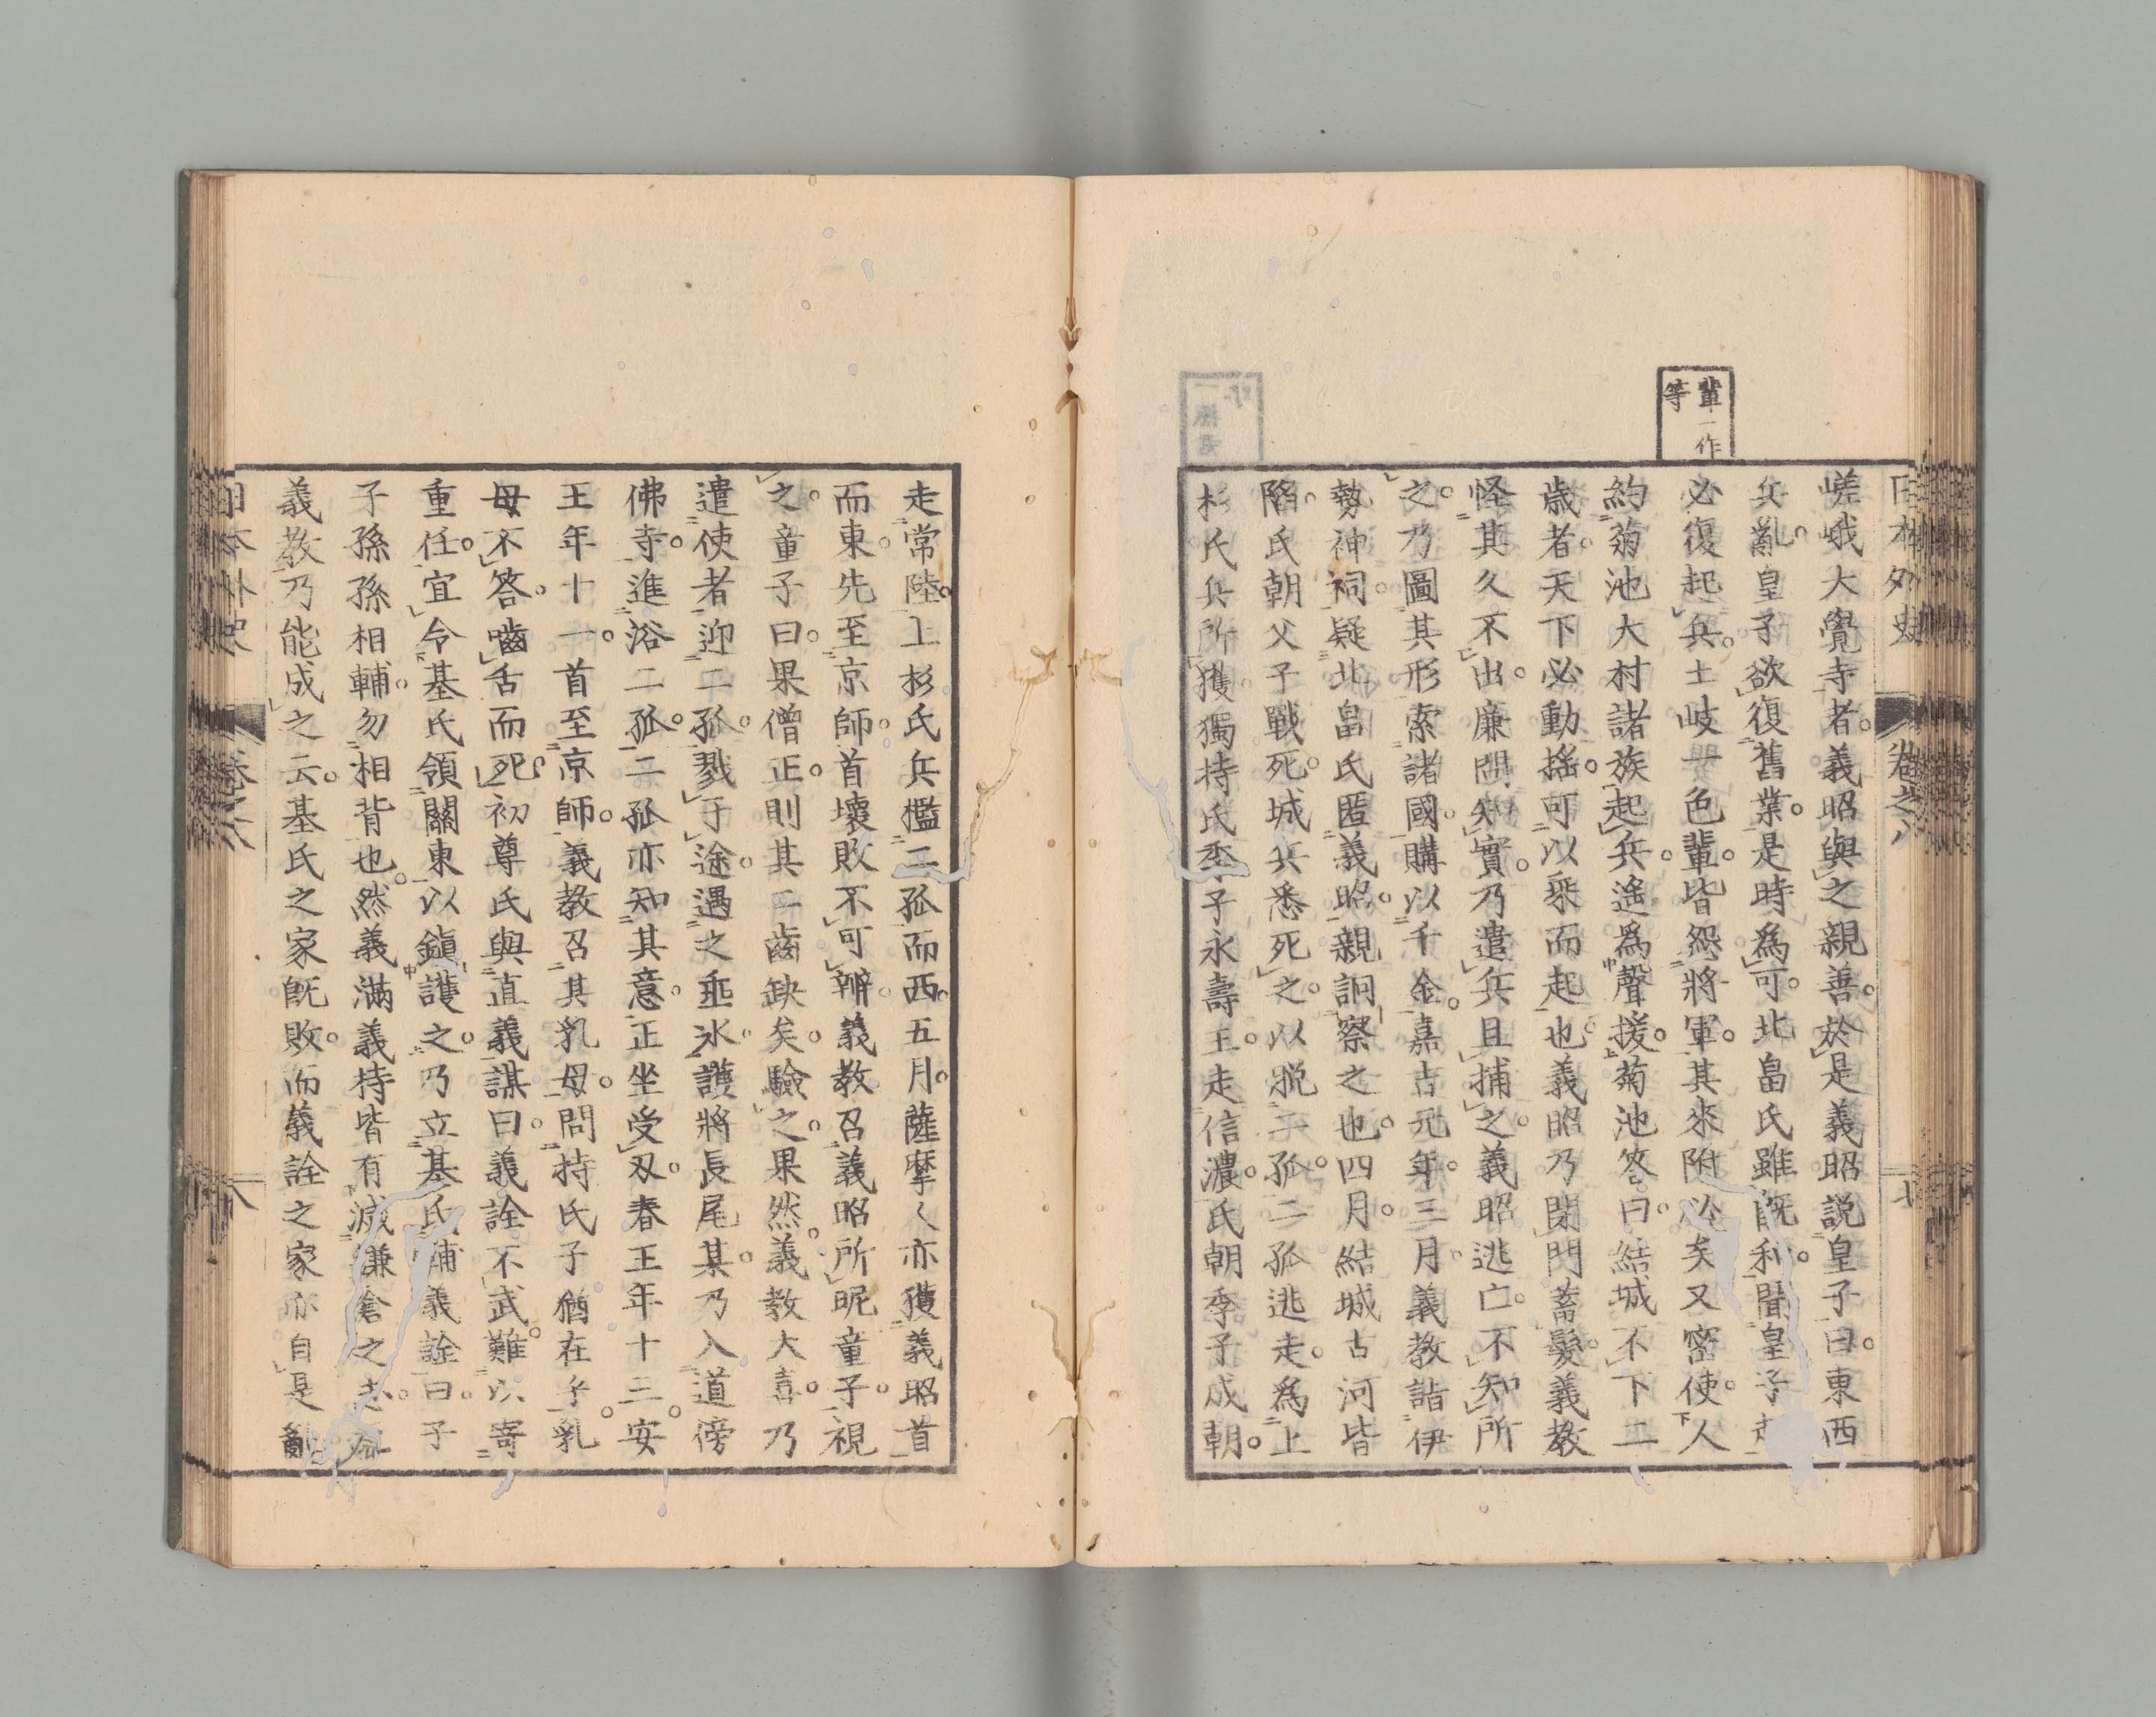 日本外史 卷之八
輩一作等
嵯峨大覺寺者。義昭與之親善。於是義昭説皇子曰。東西
兵亂。皇子欲復舊業。是時爲可。北畠氏雖既利。聞皇子
必復起兵。土岐一色輩。皆怨將軍。其來附必矣。又密使人
約菊池大村諸族起兵。遙爲聲援。菊池答曰。結城不下二
歳者。天下必動搖。可以乘而起也。義昭乃閉門蓄髮。義教
怪其久不出。廉問知實。乃遣兵且捕之。義昭逃亡。不知所
之。乃圖其形索諸國。購以千金。嘉吉元年。三月義教詣伊
勢神祠。疑北畠氏匿義昭。親詗察之也。四月。結城古河皆
陷。氏朝父子戰死。城兵悉死之。以脱二孤。二孤逃走。爲上
杉氏兵所獲。獨持氏季子永壽王。走信濃。氏朝季子成朝。
走常陸。上杉氏兵檻二孤而西。五月。薩摩人亦獲義昭首
而東。先至京師。首壞敗不可辨。義教召義昭所昵童子。視
之。童子曰。果僧正。則其二齒缺矣。驗之。果然。義教大喜。乃
遣使者迎二孤。戮于途。遇之垂氷。護將長尾某。乃入道傍
佛寺。進浴二孤。二孤亦知其意。正坐受刃。春王年十三。安
王年十一。首至京師。義教召其乳母。問持氏子猶在乎。乳
母不答。嚙舌而死。初尊氏與直義謀曰。義詮不武。難以寄
重任。宜令基氏領關東以鎭護之。乃立基氏輔義詮曰。子
子孫孫相輔。勿相背也。然義滿義持皆有滅謙倉之志。命
義教乃能成之云。基氏之家既敗。而義詮之家亦自是亂
日本外史 卷之八